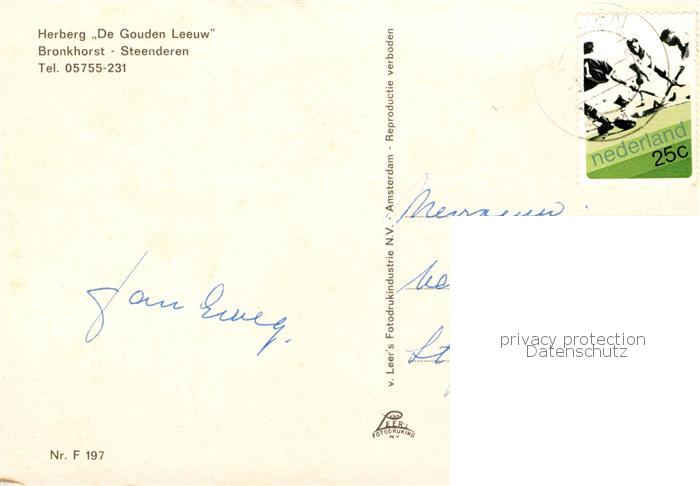 Herberg „De Gouden Leeuw"
Bronkhorst - Steenderen
Tel. 05755-231
v. Leer's Fotodrukindustrie N.V. - Amsterdam - Reproductie verboden
nederland
25c
Jan
privacy protection
Datenschutz
VAN
LEER's
FOTODRUKIND
N.V.
Nr. F 197